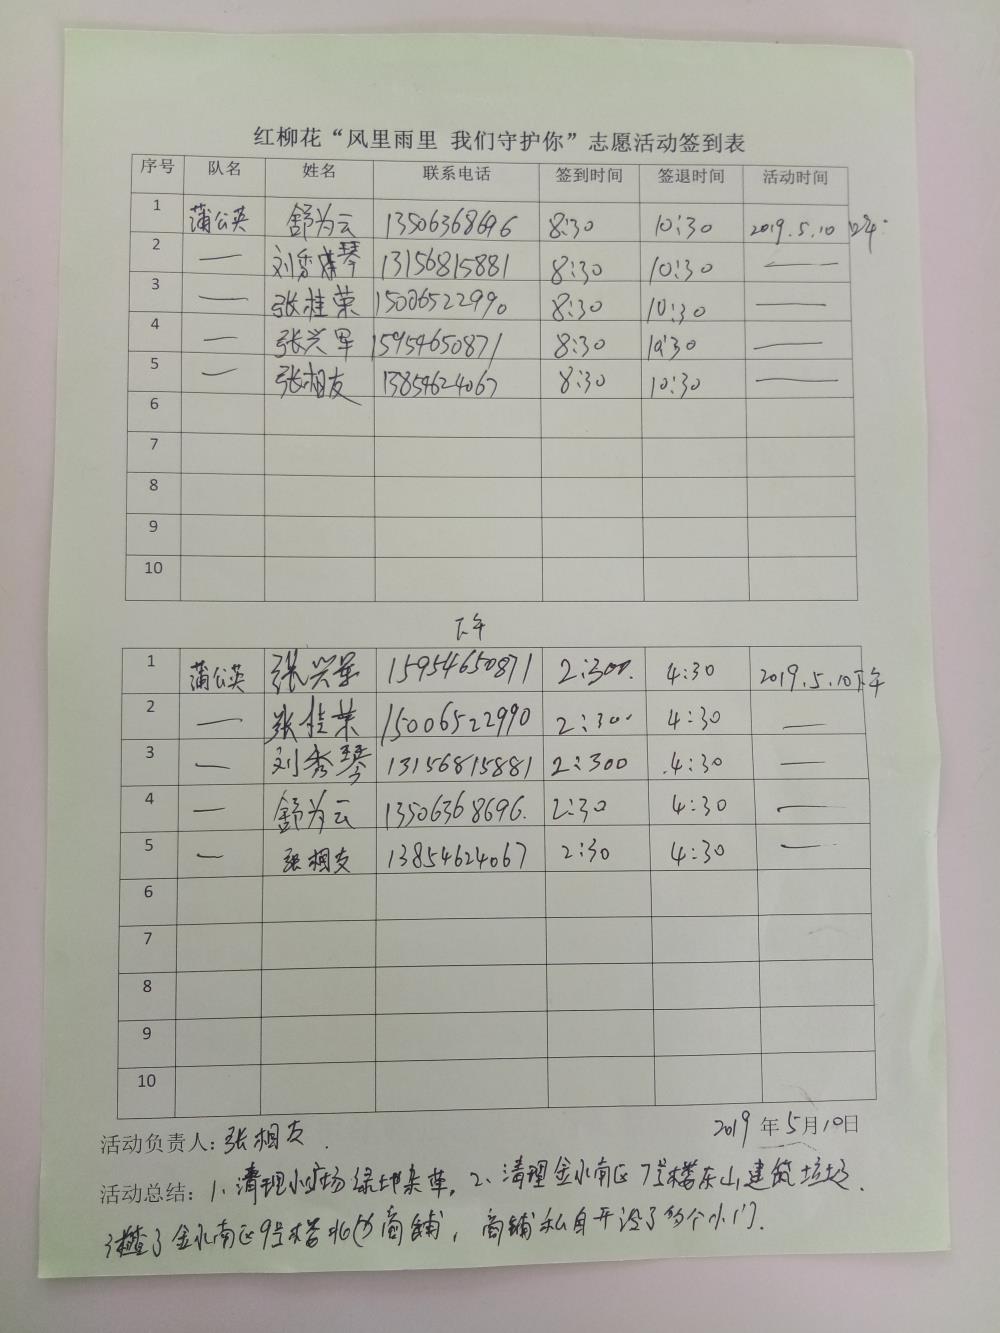 红柳花“风里雨里 我们守护你”志愿活动签到表
序号 队名 姓名 联系电话 签到时间 签退时间 活动时间
1 蒲公英 舒为云 13506368696 8:30 10:30 2019.5.10
2 — 刘秀琴 13156815881 8:30 10:30 —
3 — 张桂荣 15006522990 8:30 10:30 —
4 — 张兴军 15954650871 8:30 10:30 —
5 — 张相友 13854624067 8:30 10:30 —
6
7
8
9
10
下午
1 蒲公英 张兴军 15954650871 2:300. 4:30 2019.5.10下午
2 — 张桂荣 15006522990 2:30 4:30 —
3 — 刘秀琴 13156815881 2:300 4:30 —
4 — 舒为云 13506368696. 2:30 4:30 —
5 — 张相友 13854624067 2:30 4:30 —
6
7
8
9
10
活动负责人：张相友.
2019年5月10日
活动总结：1、清理小广场绿地杂草。2、清理金水南区7号楼东山建筑垃圾.
了金水南区9号楼北商铺，商铺私自开设了个小门.